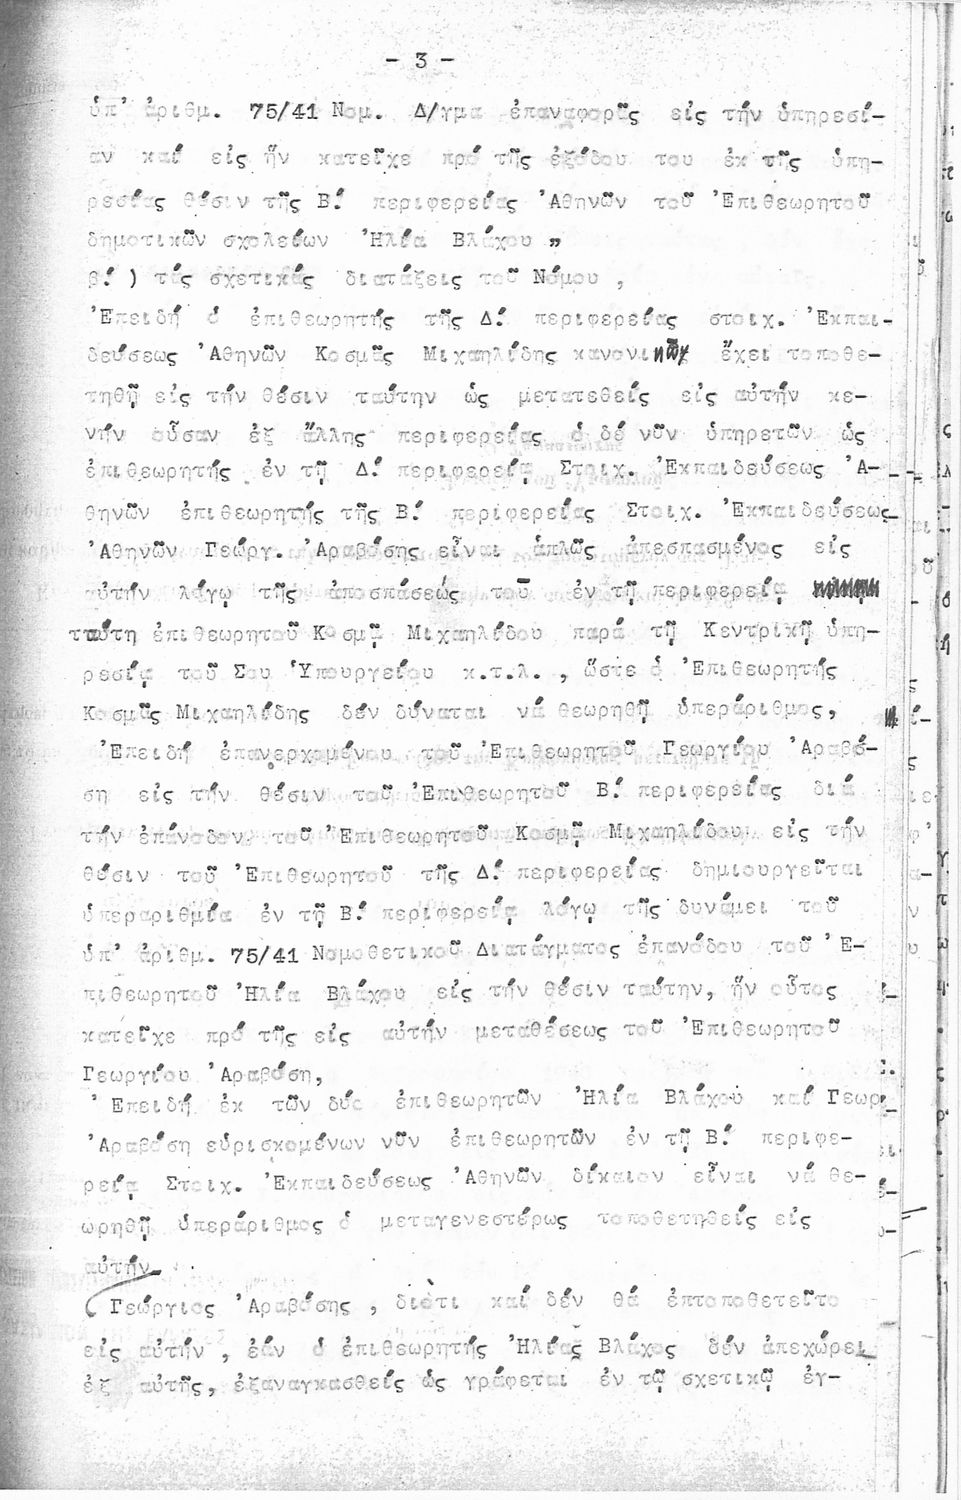 - 3 -
ὑπ' ἀριθμ. 75/41 Νομ. Δ/γμα ἐπαναφορᾶς εἰς τήν ὑπηρεσί-
αν καί εἰς ἥν κατεῖχε πρό τῆς ἐξόδου του ἐκ τῆς ὑπη-
ρεσίας θέσιν τῆς Β! περιφερείας 'Αθηνῶν τοῦ 'Επιθεωρητοῦ
δημοτικῶν σχολείων 'Ηλία Βλάχου "
β! ) τάς σχετικάς διατάξεις τοῦ Νόμου ,
'Επειδή ὁ ἐπιθεωρητής τῆς Δ! περιφερείας στοιχ. 'Εκπαι-
δεύσεως 'Αθηνῶν Κοσμᾶς Μιχαηλίδης κανονικῶς ἔχει τοποθε-
τηθῆ εἰς τήν θέσιν ταύτην ὡς μετατεθείς εἰς αὐτήν κε-
νήν οὖσαν ἐξ ἄλλης περιφερείας ὁ δέ νῦν ὑπηρετῶν ὡς
ἐπιθεωρητής ἐν τῇ Δ! περιφερείᾳ Στοιχ. 'Εκπαιδεύσεως 'Α-
θηνῶν ἐπιθεωρητής τῆς Β! περιφερείας Στοιχ. 'Εκπαιδεύσεως
'Αθηνῶν Γεώργ. 'Αραβόσης εἶναι ἁπλῶς ἀπεσπασμένος εἰς
αὐτήν λόγῳ τῆς ἀποσπάσεώς τοῦ ἐν τῇ περιφερείᾳ
ταύτη ἐπιθεωρητοῦ Κοσμᾶ Μιχαηλίδου παρά τῇ Κεντρικῇ ὑπη-
ρεσίᾳ τοῦ Σου 'Υπουργείου κ.τ.λ. , ὥστε ὁ 'Επιθεωρητής
Κοσμᾶς Μιχαηλίδης δέν δύναται νά θεωρηθῇ ὑπεράριθμος,
'Επειδή ἐπανερχομένου τοῦ 'Επιθεωρητοῦ Γεωργίου 'Αραβό-
ση εἰς τήν θέσιν τοῦ 'Επιθεωρητοῦ Β! περιφερείας διά
τήν ἐπάνοδον τοῦ 'Επιθεωρητοῦ Κοσμᾶ Μιχαηλίδου εἰς τήν
θέσιν τοῦ 'Επιθεωρητοῦ τῆς Δ! περιφερείας δημιουργεῖται
ὑπεραριθμία ἐν τῇ Β! περιφερείᾳ λόγῳ τῆς δυνάμει τοῦ
ὑπ' ἀριθμ. 75/41 Νομοθετικοῦ Διατάγματος ἐπανόδου τοῦ 'Ε-
πιθεωρητοῦ 'Ηλία Βλάχου εἰς τήν θέσιν ταύτην, ἥν οὗτος
κατεῖχε πρό τῆς εἰς αὐτήν μεταθέσεως τοῦ 'Επιθεωρητοῦ
Γεωργίου 'Αραβόση,
'Επειδή ἐκ τῶν δύο ἐπιθεωρητῶν 'Ηλία Βλάχου καί Γεωρ
'Αραβόση εὑρισκομένων νῦν ἐπιθεωρητῶν ἐν τῇ Β! περιφε-
ρείᾳ Στοιχ. 'Εκπαιδεύσεως 'Αθηνῶν δίκαιον εἶναι νά θε-
ωρηθῇ ὑπεράριθμος ὁ μεταγενεστέρως τοποθετηθείς εἰς
αὐτήν
Γεώργιος 'Αραβόσης , διότι καί δέν θά ἐπτοποθετεῖτο
εἰς αὐτήν , ἐάν ὁ ἐπιθεωρητής 'Ηλίας Βλάχος δέν ἀπεχώρει
ἐξ αὐτῆς, ἐξαναγκασθείς ὡς γράφεται ἐν τῷ σχετικῷ ἐγ-